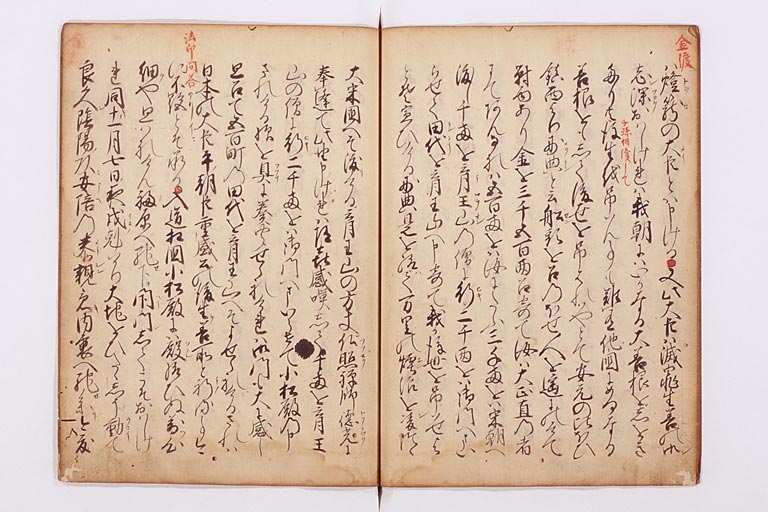 金渡
燈籠の大臣とぞ申ける又此大臣滅罪生善の御
志深おはしければ我朝にいかなる大善根をしをき
たりとも後生弔はん事も難し他国にいかなる
子孫相續して
善根をもして後世を弔ればやとて安元の比ほひ
鎮西より妙典と云船頭を召のぼせ人を遙にのけて
対面あり金を三千五百両召寄て汝は大正直の者
にてあんなれば五百両をば汝にたぶ三千両をば宋朝へ
渡し千両を育王山の僧に引二千両をば御門へまい
らせて田代を育王山へ申寄て我が後世を弔せよ
とぞ宣ひける妙典是を給て万里の煙浪を凌つゝ
大宋国へぞ渡ける育王山の方丈仏照禅師徳光に
奉逢て此由申ければ随喜感嘆して千両を育王
山の僧に引二千両をば御門へまいらせて小松殿の申
されける様を具に奏せられければ御門も大に感じ
思召て五百町の田代を育王山へぞよせられけるされば
日本の大臣平朝臣重盛公の後生善所と祈る事今に
法印問答
不絶とぞ承る入道相国小松殿に後れ給ぬ万心
細や思はれけん福原へ馳下閉門してこそおはしけ
れ同十一月七日夜戌刻ばかり大地おびたゝしう動て
良久陰陽頭安倍泰親急内裏へ馳参て今度